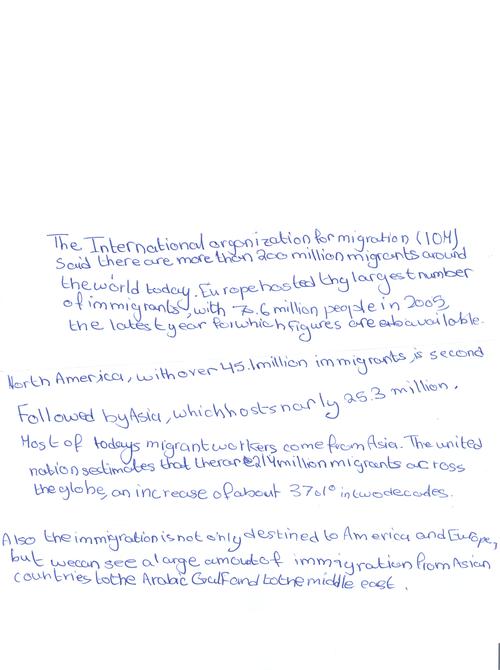 The International organization for migration (IOM)
Said there are more than 200 million migrants around
the world today. Europe hosted thg largest number
of immigrants, with 7.6 million people in 2005,
the latest year for which figures are available.
North America, with over 45.1 million immigrants, is second
Followed by Asia, which hosts narly 25.3 million.
Most of todays migrant workers come from Asia. The united
nation sestimates that there are 214 million migrants across
the globe, an increase of about 37% in two decades.
Also the immigration is not only destined to America and Europe,
but we can see a large amout of immigration from Asian
countries to the Arabic Gulf and to the middle east.